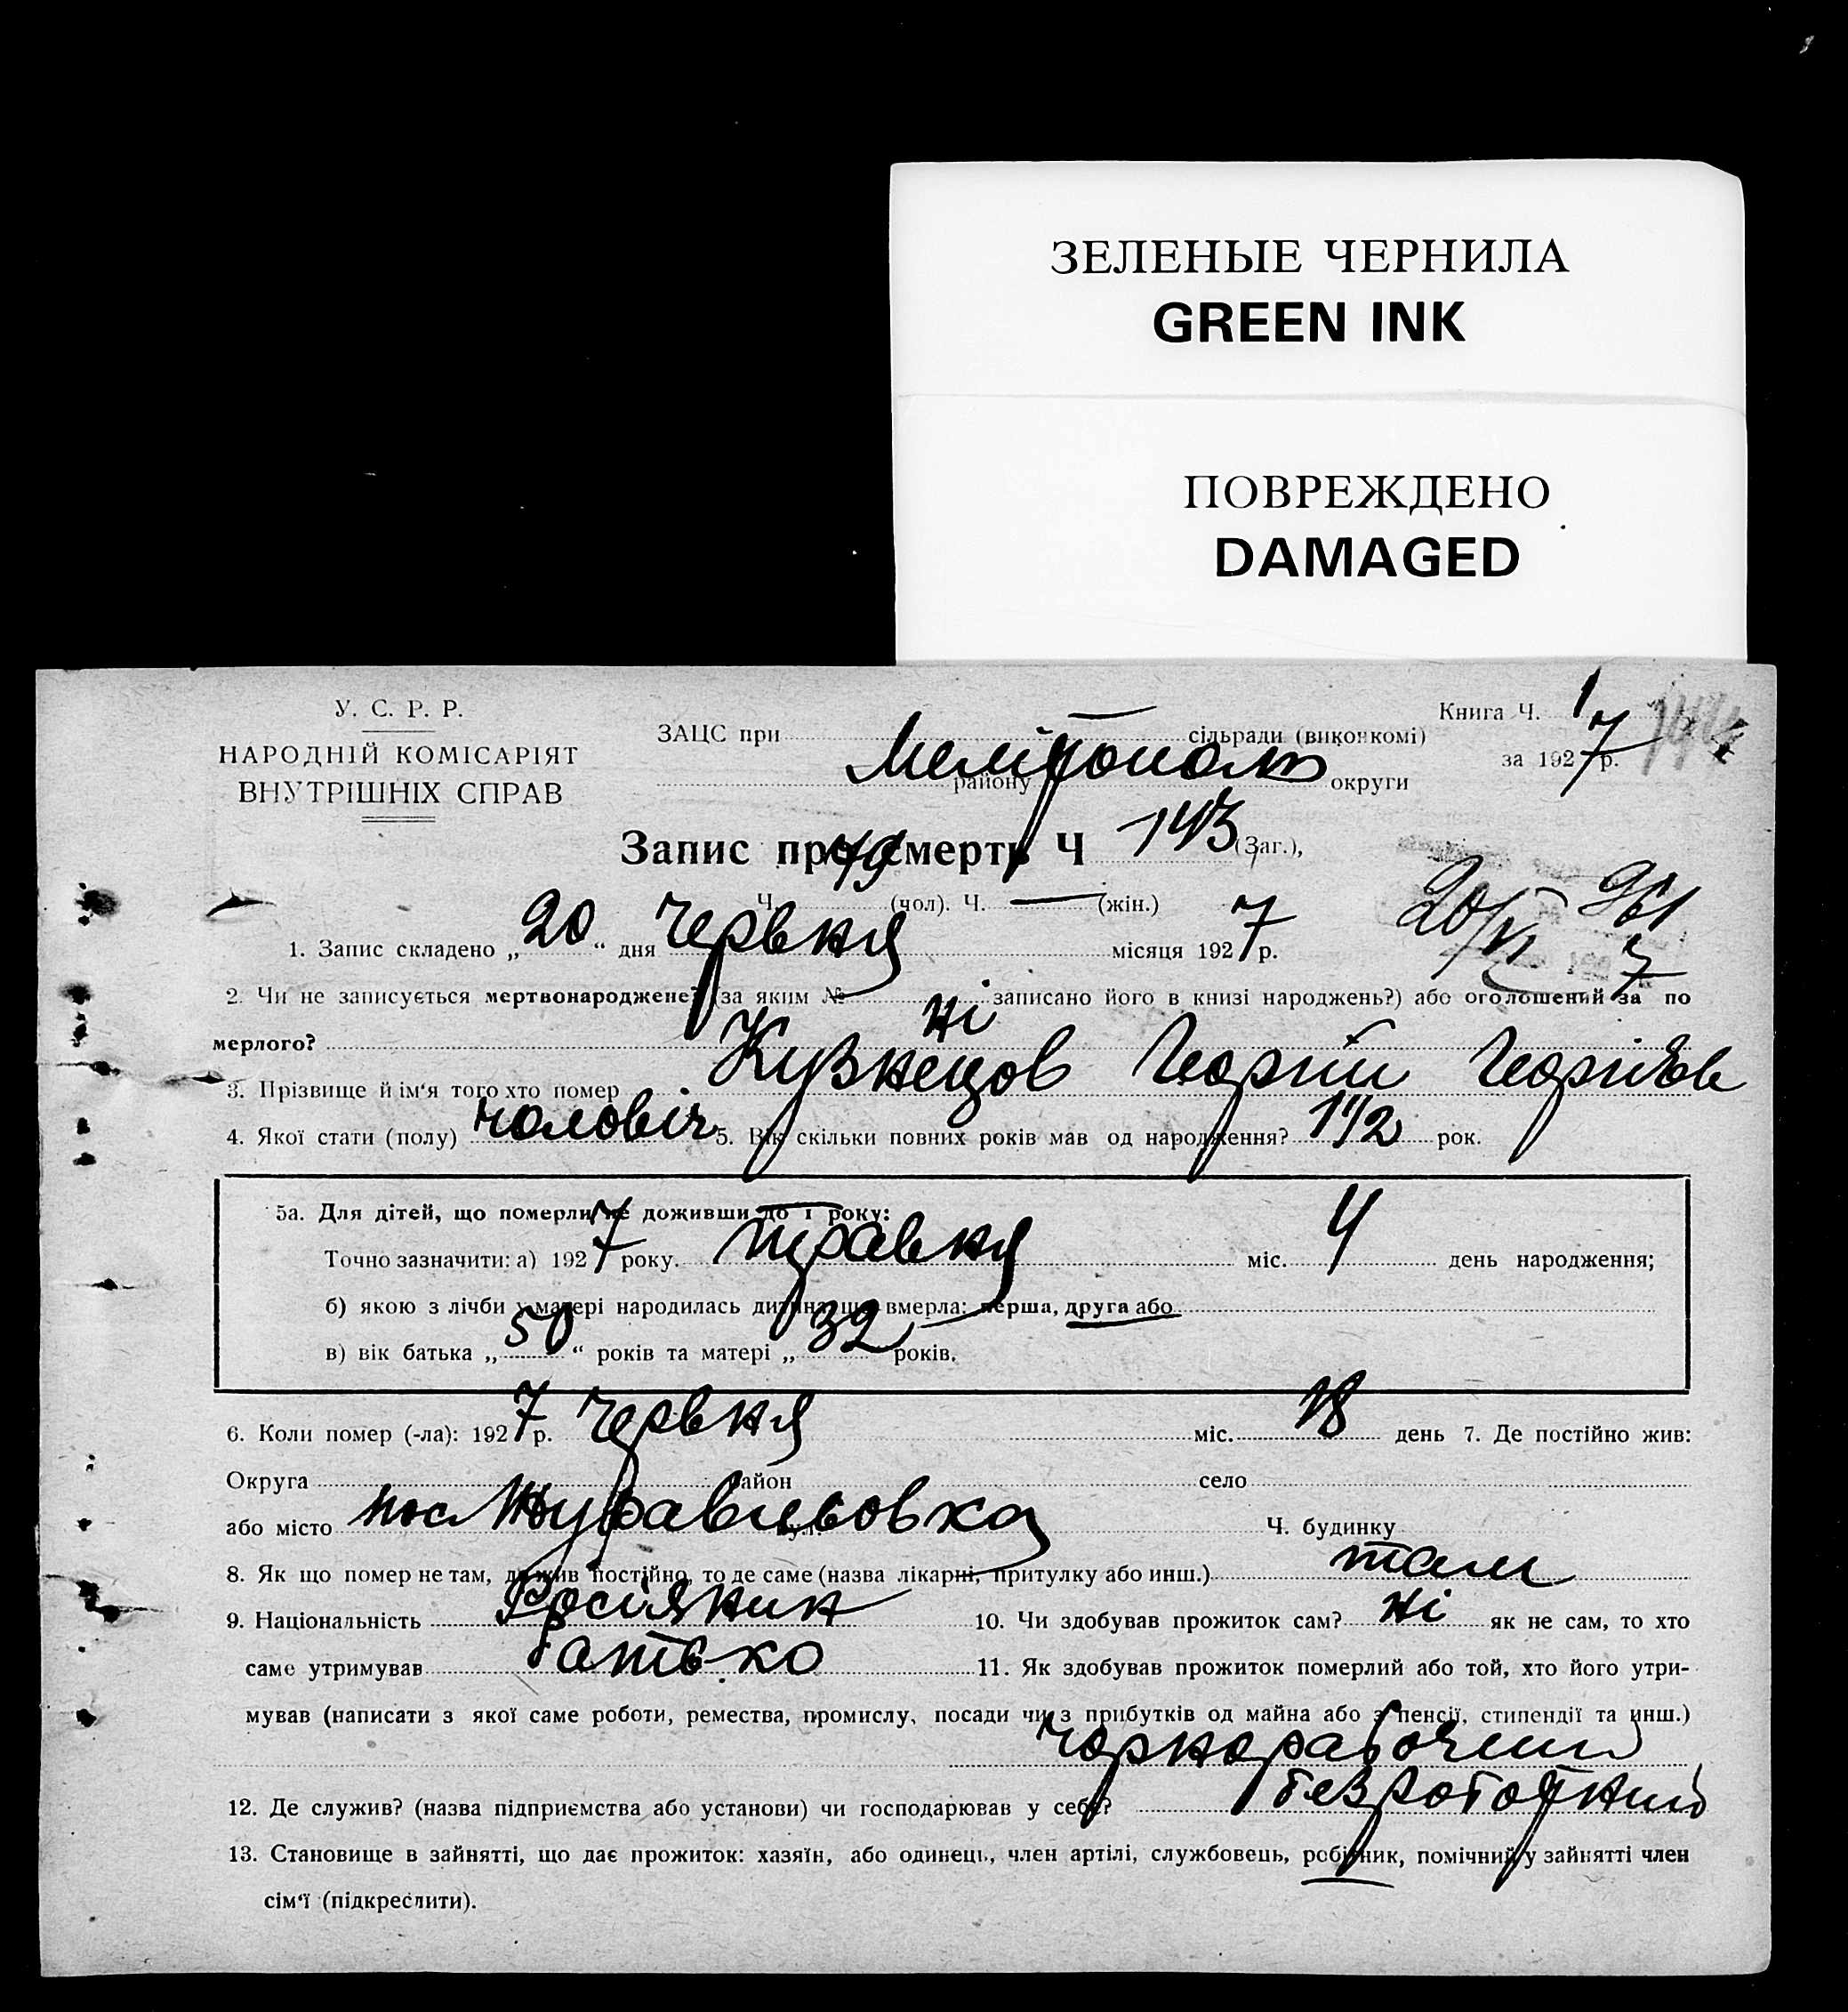 ЗЕЛЕНЫЕ ЧЕРНИЛА
GREEN INK
ПОВРЕЖДЕНО
DAMAGED
У. С. Р. Р.
НАРОДНІЙ КОМІСАРІЯТ
ВНУТРІШНІХ СПРАВ
Книга Ч. 1
за 1927 р.
ЗАЦС при сільради (виконкомі)
Мелітополь
району округи
Запис про смерть Ч 143 (Заг.),
Ч. 79 (чол). Ч. — (жін.)
20/VI 7
1. Запис складено „20“ дня Червня місяця 1927 р.
2. Чи не записується мертвонароджене? (за яким № записано його в книзі народжень?) або оголошений за по
мерлого? ні
3. Прізвище й ім'я того хто помер Кузнецов Георгій Георгіев
4. Якої стати (полу) чоловіч 5. Вік скільки повних років мав од народження? 1 1/2 рок.
5а. Для дітей, що померли не доживши до 1 року:
Точно зазначити: а) 1927 року. травня міс. 4 день народження;
б) якою з лічби у матері народилась дитина, що вмерла: перша, друга або
в) вік батька „50“ років та матері „32 років.
6. Коли помер (-ла): 1927 р. Червня міс. 18 день 7. Де постійно жив:
Округа район село
або місто пос Журавльовка вул. Ч. будинку
8. Як що помер не там, де жив постійно, то де саме (назва лікарні, притулку або инш.) там
9. Національність Росіянин 10. Чи здобував прожиток сам? Ні як не сам, то хто
саме утримував батько 11. Як здобував прожиток померлий або той, хто його утри-
мував (написати з якої саме роботи, ремества, промислу, посади чи з прибутків од майна або з пенсії, стипендії та инш.)
Чорнорабочий
безроботний
12. Де служив? (назва підприємства або установи) чи господарював у себе?
13. Становище в зайнятті, що дає прожиток: хазяїн, або одинець, член артілі, службовець, робітник, помічний у зайнятті член
сім'ї (підкреслити).